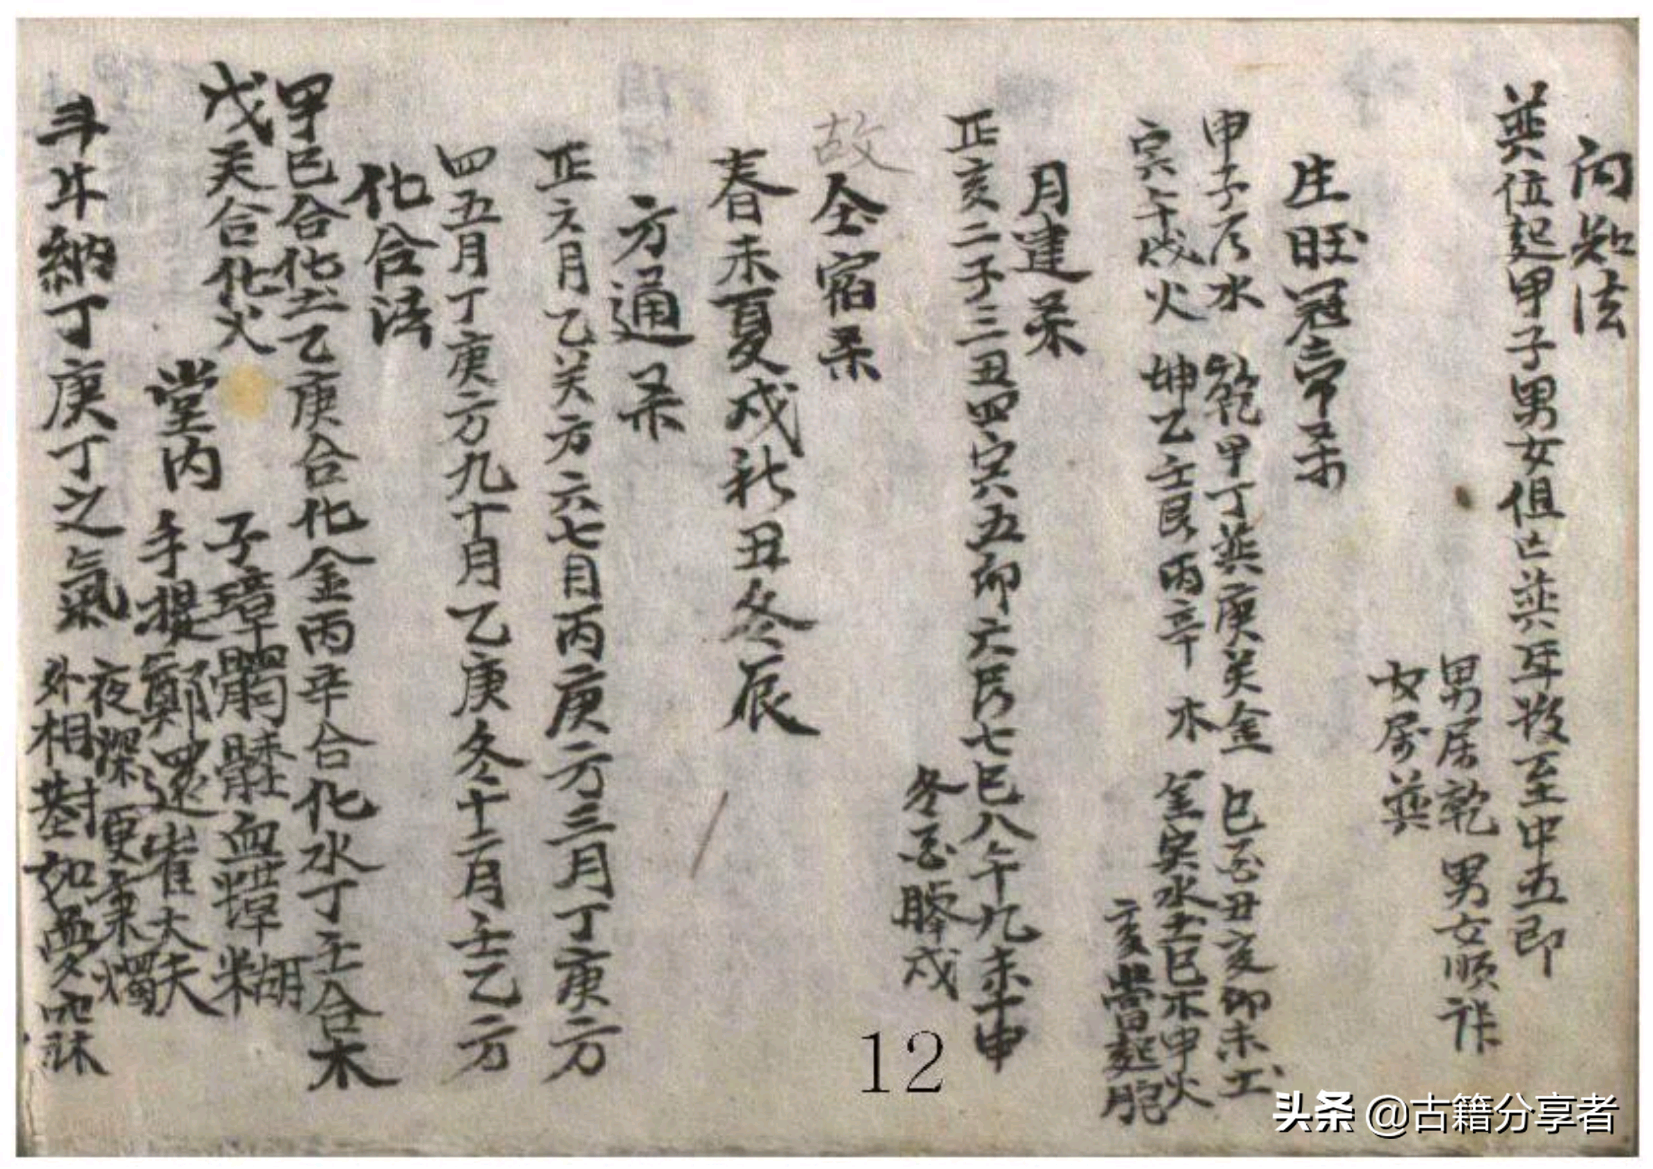 向知法
巽位起甲子男女俱亡巽年数至中五即
男居乾 男女順
女居巽
生旺冠帝
甲子辰水 乾甲丁巽庚癸金 丑亥卯未土
寅午戌火 坤乙壬艮丙辛木 金寅水土巳木申火
亥當起胞
月建杀
正亥二子三丑四寅五卯六辰七巳八午九未十申
冬 戌
故
全宿杀
春未夏戌秋丑冬辰
方通杀
正六月乙癸方六七月丙庚方三月丁庚方
四五月丁庚方九十月乙庚冬十二月壬乙方
化合法
甲巳合化土乙庚合化金丙辛合化水丁壬合木
戊癸合化火
堂内
子璋髑髏血糢糊
手提鄭還崔大夫
斗牛納丁庚丁之氣
夜深更秉燭
外相對如夢寐
12
头条 @古籍分享者